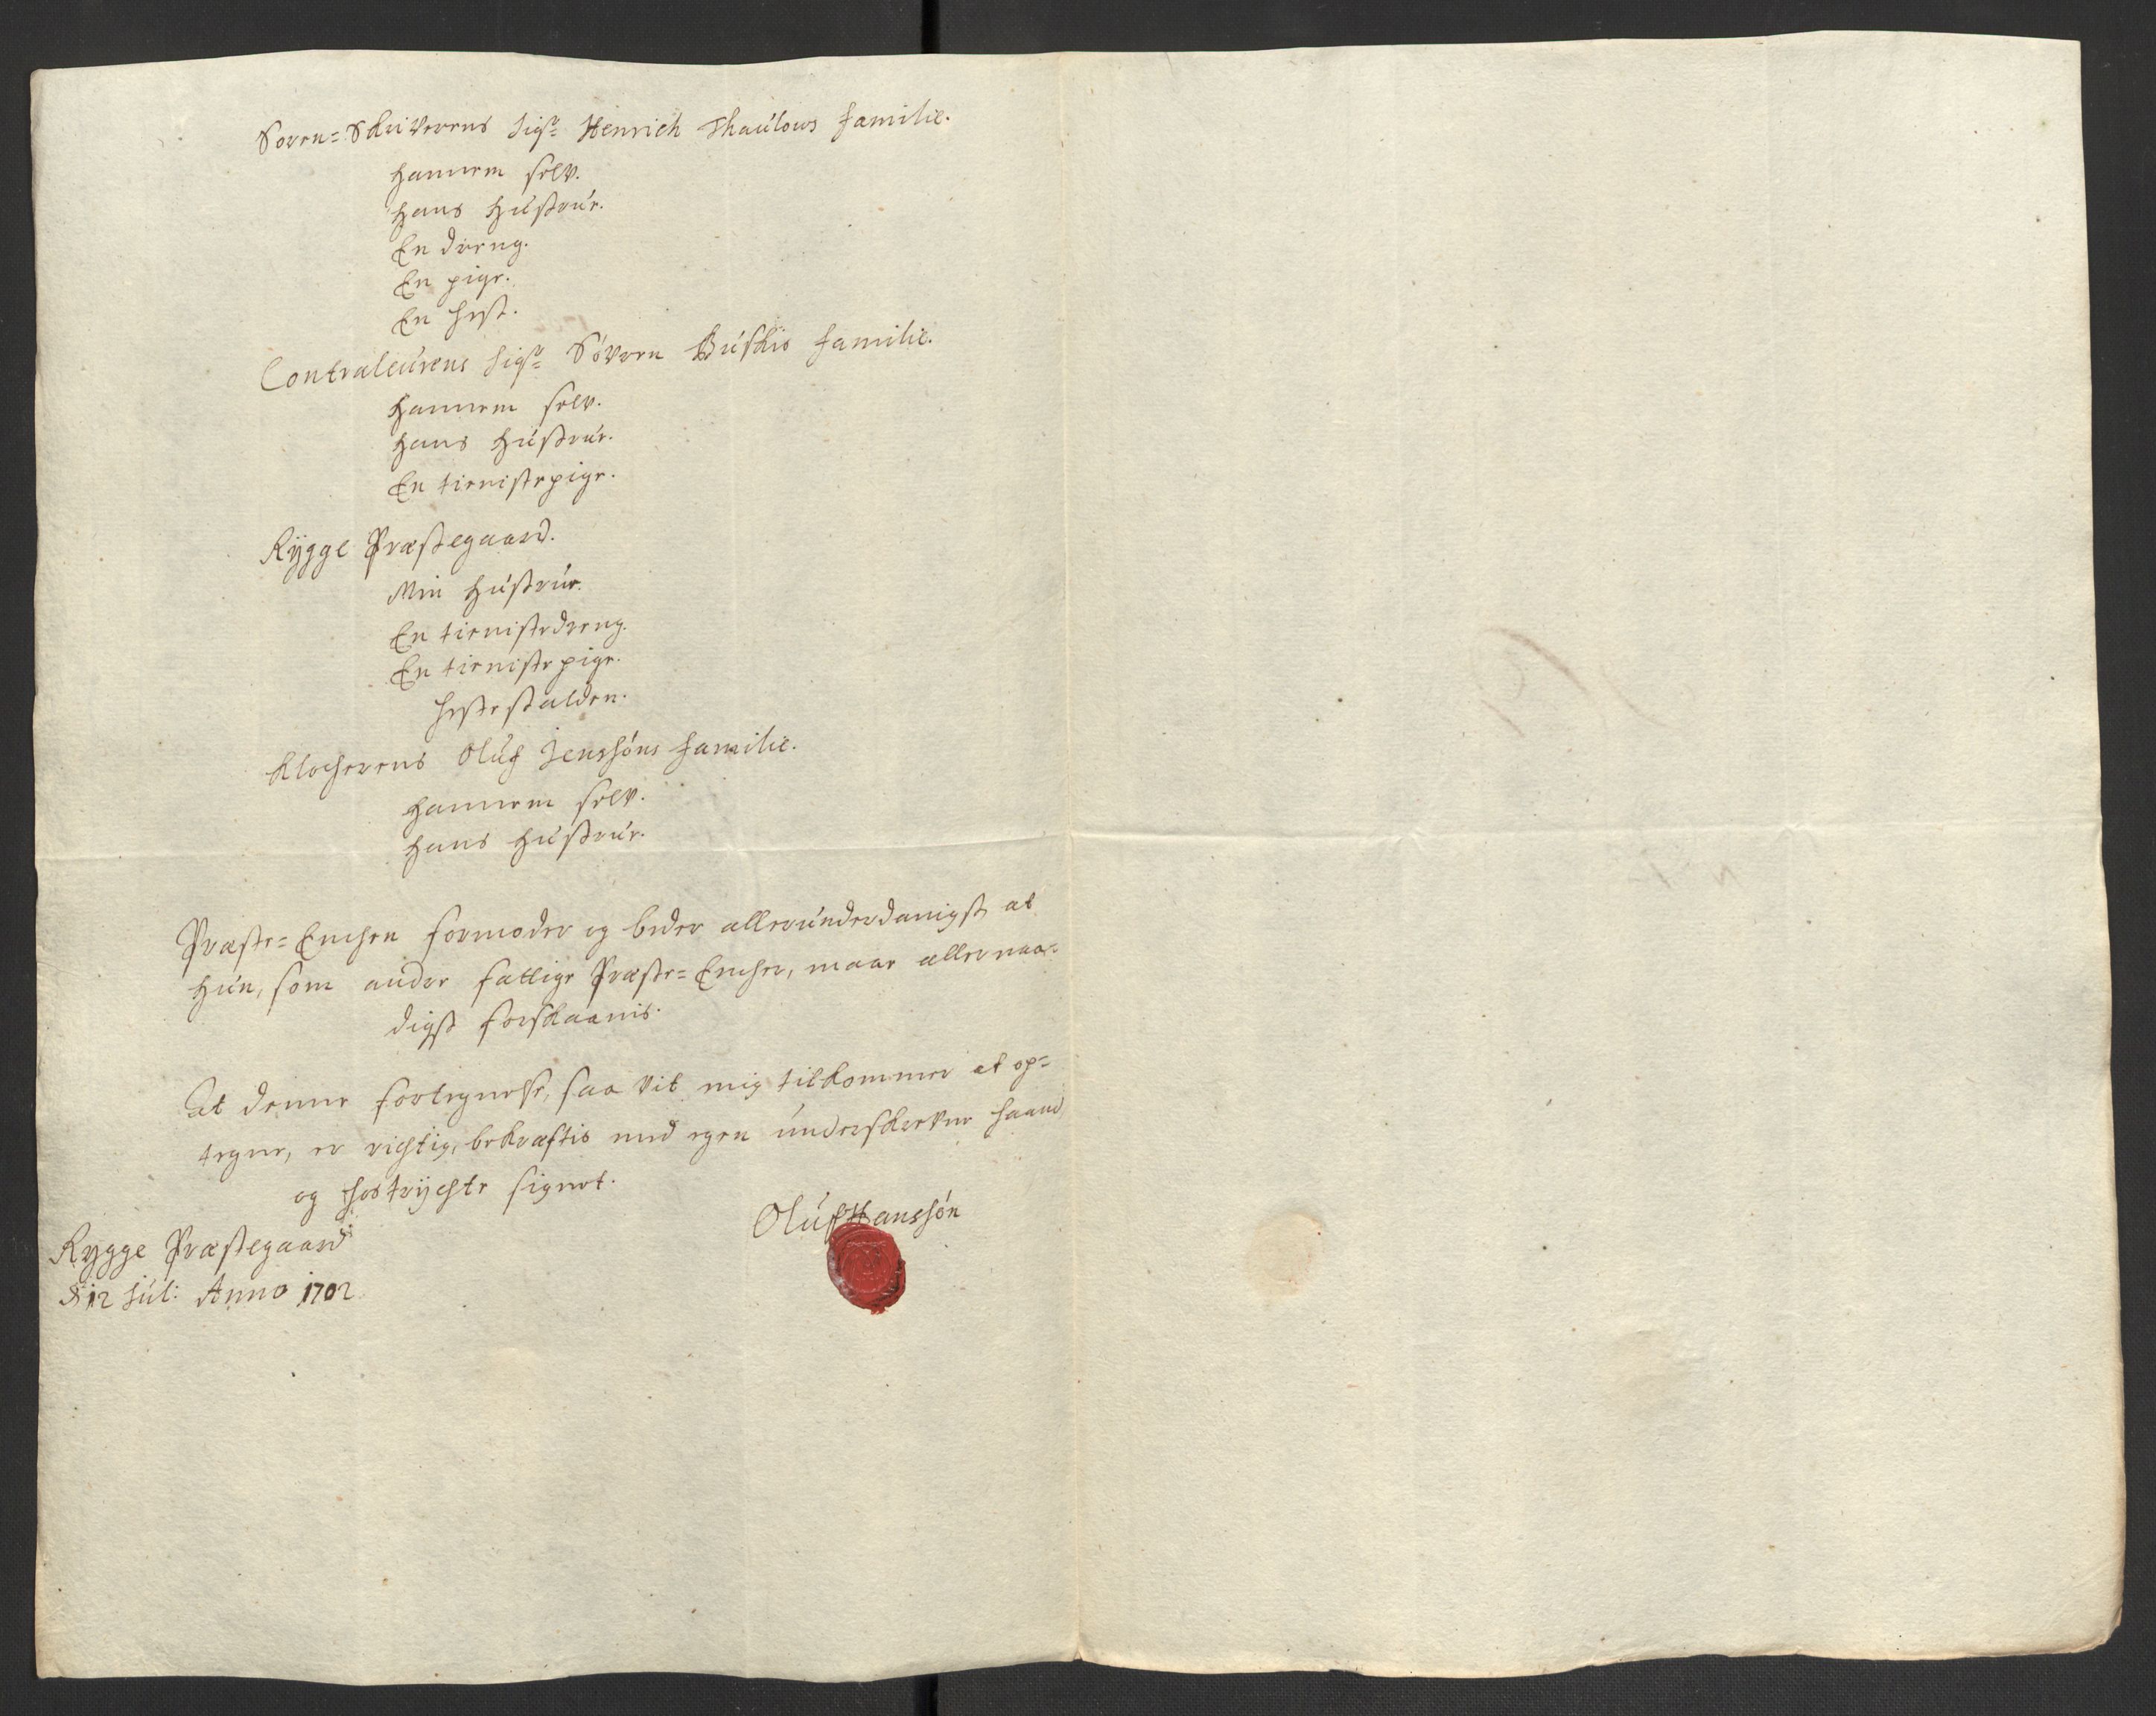 Soren=Skriverens Sigr Henrich Thaulows familie.
Hannem selv.
Hans Hustrue.
En dreng.
En pige.
En hest.
Contraleurens Sigr Søvren Buskis familie.
Hannem selv.
Hans Hustrue.
En tienistepige.
Rygge Præstegaard.
Min Hustrue.
En tienistedreng.
En tienistepige.
Hestestalden.
Klocherens Oluf Jenssøns familie.
Hannem selv.
Hans Hustrue.
Præste=Enchen formoder og beder allerunderdanigst at
Hun, som andre fattige Præste=Encher, maae allernaa=
digst forskaanis.
At denne fortegnelse, saa vit mig tilkommer at op=
tegne, er richtig, bekræftis med egen underskrevne haand
og hostrychte signet.
Oluf Hanssøn
Rygge Præstegaard
d 12 Jul: Anno 1702